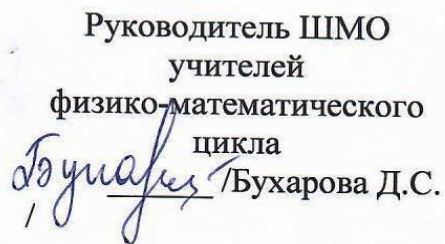 Руководитель ШМО
учителей
физико-математического
цикла
/Бухарова Д.С.
/